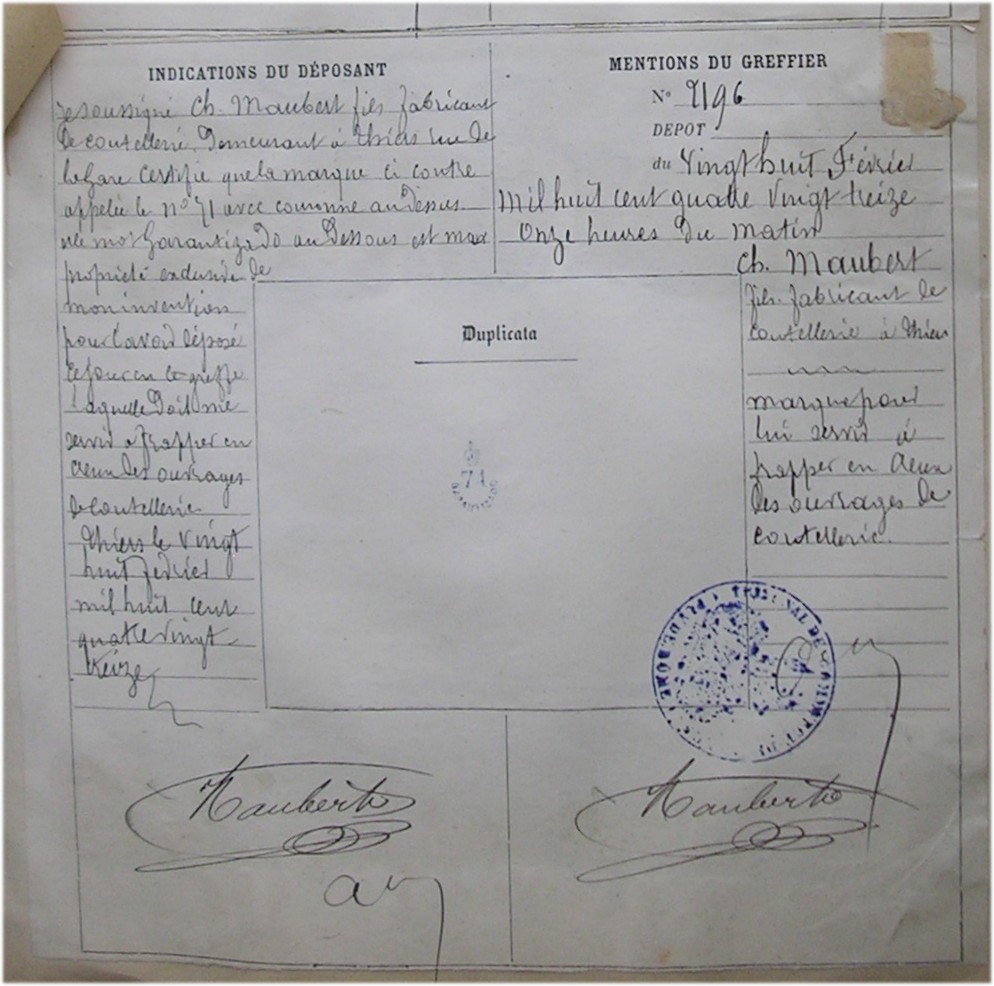 INDICATIONS DU DÉPOSANT
Je soussigné Ch. Maubert fils fabricant
de coutellerie, Demeurant à Thiers rue de
la Gare certifie que la marque ci contre
appelée le n° 71 avec couronne au Dessus
et le mot Garantizado au Dessous est ma
propriété exclusive de
mon invention
pour l'avoir déposé
ce jour en ce greffe
Laquelle Doit me
servir à frapper en
creux des ouvrages
de Coutellerie
Thiers le Vingt
huit février
mil huit cent
quatre vingt
treize
MENTIONS DU GREFFIER
N° 2196
DEPOT
du Vingt huit Février
Mil huit cent quatre Vingt treize
Onze heures Du Matin
Ch. Maubert
fils fabricant de
coutellerie à Thiers
marque pour
lui servir à
frapper en creux
des ouvrages de
coutellerie.
Duplicata
71
GARANTIZADO
TRIBUNAL DE COMMERCE
PUY-DE-DOME
Maubert
Maubert